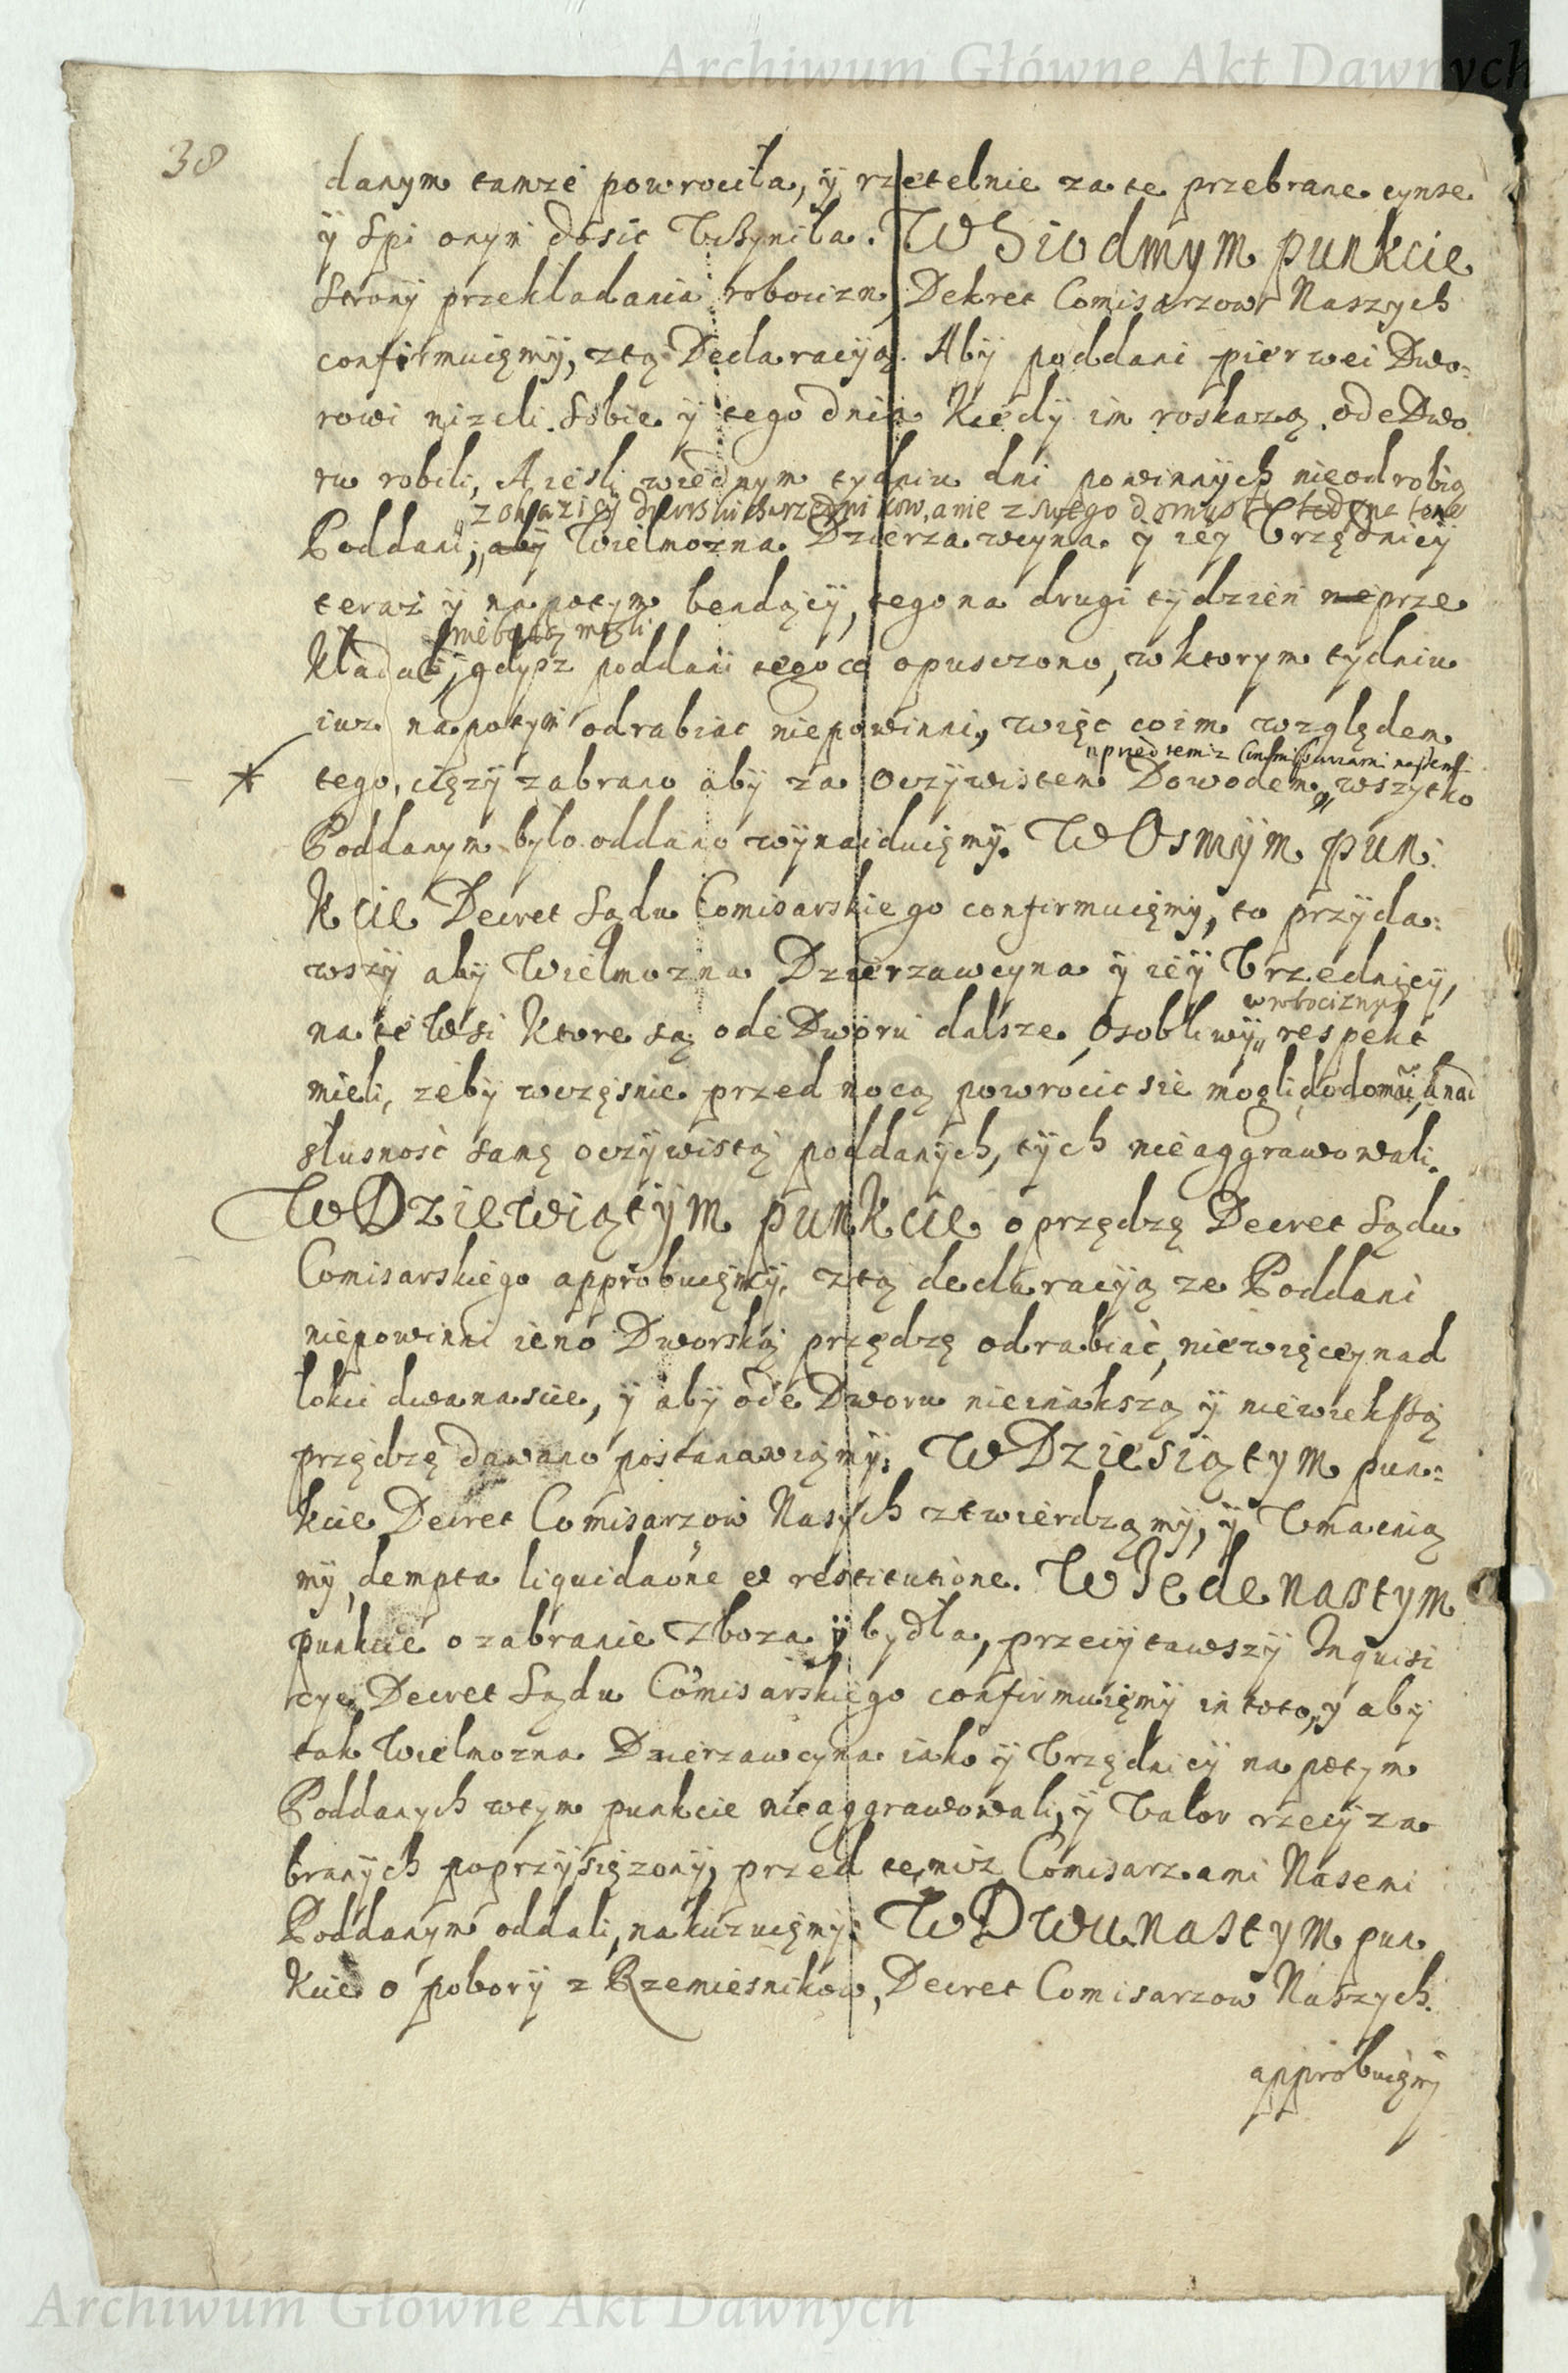 Archiwum Główne Akt Dawnych
38
danym tamze powrociła, ÿ rzetelnie za te przebrane cynse
ÿ Spi onym dosic Vczyniła. W Siodmym punkcie
Strony przekładania robocizn, Dekret Comisarzow Naszych
confirmuięmÿ, ztą Declaracÿą. Abÿ poddani pierwei Dwo=
rowi nizeli Sobie ÿ tego dnia Kiedÿ im roskazą ode Dwo
ru robili, A iesli wiednym tydniu dni powinnÿch nieodrobią
z okaziÿ dworskich urzędnikow, a nie z swego domusłu tedy na ten
Poddani, abÿ Wielmozna Dzierzawcyna ÿ ieÿ Vrzędnicÿ
teraz ÿ napotym bendącÿ, tego na drugi tydzien nie prze
nie będą mogli
Kładali, gdysz poddani tego co opusczono, w ktorym tydniu
iuz napotym odrabiac niepowinni, więc co im względem
tego, cięzÿ zabrano abÿ za Oczÿwistem Dowodem wszytko
przed temiz Commissarzami naszemi
Poddanym było oddano wÿnaiduięmÿ. W Osmÿm pun=
Kcie Decret Sądu Comisarskiego confirmuięmÿ, to przÿda=
wszÿ abÿ Wielmozna Dzierzawcyna ÿ ieÿ Vrzednicÿ,
w robociznÿ
na te Wsi Ktore są ode Dworu dalsze Osobliwÿ respekt
mieli, zebÿ wczęsnie przed nocą powrocic sie mogli do domu, a nad
słusnosć samę oczÿwistą poddanÿch, tÿch nieaggrawowali.
W Dziewiątÿm punkcie o przędzę Decret Sądu
Comisarskiego approbuięmÿ, ztą declaracÿą ze Poddani
niepowinni ieno Dworską przędzę odrabiać, niewięceÿ nad
łokci dwanascie, ÿ abÿ ode Dworu nieinakszą ÿ niewiekszą
przędzę dawano postanawiąmÿ. W Dziesiątym pun=
kcie Decret Comisarzow Nasÿch ztwierdząmÿ, ÿ Vmacnią
mÿ, dempta liquidaõne et restitutione. W Iedenastym
punkcie o zabranie Zboza ÿ bydła, przecÿtawszÿ Inquisi
cye, Decret Sądu Comisarskiego confirmuięmÿ in toto, ÿ abÿ
tak Wielmozna Dzierzawcyna iako ÿ Vrzędnicÿ na potym
Poddanych wtym punkcie nieaggrawowali, ÿ Valor rzecÿ za
branÿch poprzÿsięzonÿ, przed temisz Comisarzami Nasemi
Poddanÿm oddali, nakazuięmÿ. W Dwunastym pun
Kcie o poborÿ z Rzemiesnikow, Decret Comisarzow Naszych
approbuięmÿ
Archiwum Główne Akt Dawnych